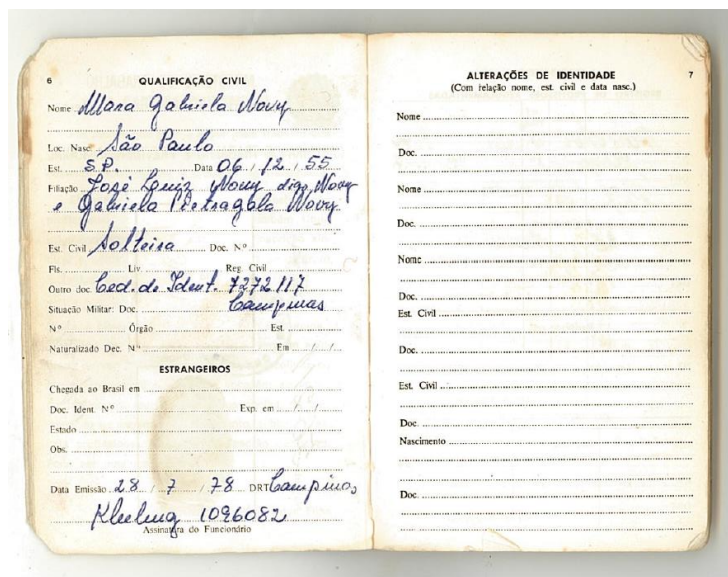 6
QUALIFICAÇÃO CIVIL
Nome Mara Gabriela Novy
Loc. Nasc. São Paulo
Est. S.P. Data 06 / 12 / 55
Filiação José Luiz Novy digo Novy
e Gabriela Pietragalo Novy
Est. Civil Solteira Doc. Nº
Fls. Liv. Reg. Civil
Outro doc. Ced. de Ident. 7272117
Situação Militar: Doc. Campinas
Nº Órgão Est.
Naturalizado Dec. Nº Em / /
ESTRANGEIROS
Chegada ao Brasil em
Doc. Ident. Nº Exp. em / /
Estado
Obs.
Data Emissão 28 / 7 / 78 DRT Campinas
1096082
Assinatura do Funcionário
ALTERAÇÕES DE IDENTIDADE 7
(Com relação nome, est. civil e data nasc.)
Nome
Doc.
Nome
Doc.
Nome
Doc.
Est. Civil
Doc.
Est. Civil
Doc.
Nascimento
Doc.